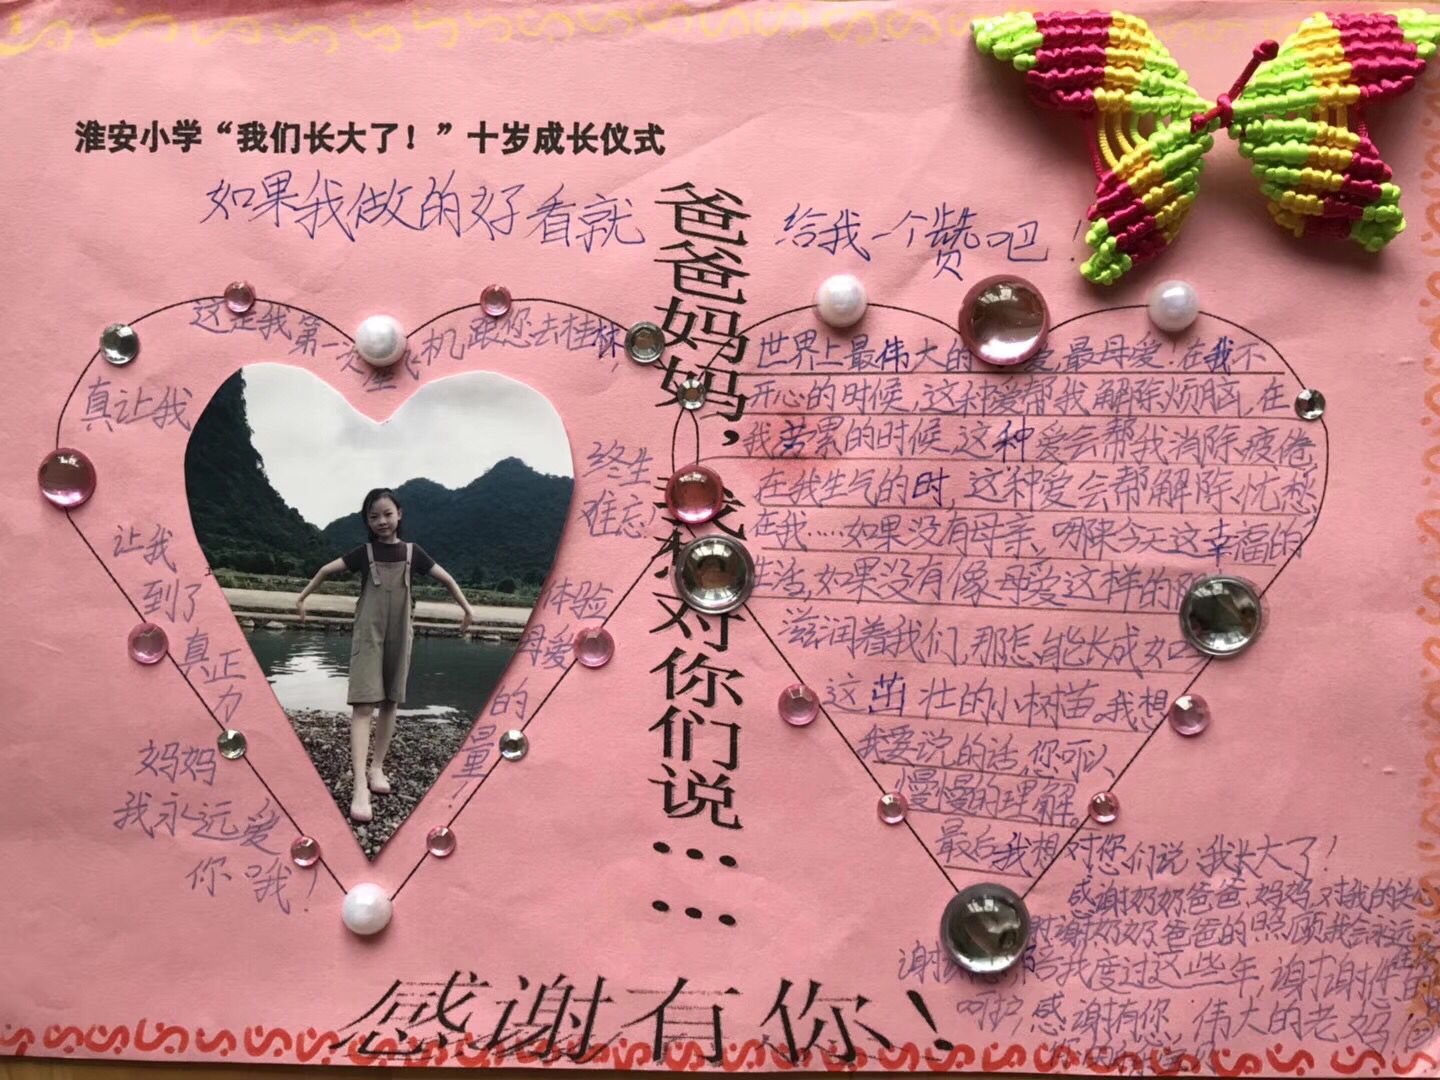 淮安小学“我们长大了！”十岁成长仪式
如果我做的好看就
给我一个赞吧！
爸爸妈妈，我想对你们说……
这是我第一次坐飞机跟您去桂林，
真让我
终生
难忘
让我
体验
到了
母爱
真正
的
力
量！
妈妈
我永远爱
你哦！
世界上最伟大的 爱，最母爱！在我不
开心的时候，这种爱帮我解除烦脑，在
我苦累的时候，这种爱会帮我消除疲倦，
在我生气的时，这种爱会帮解除忧愁，
在我……如果没有母亲、哪来今天这幸福的
生活，如果没有像母爱这样的
滋润着我们，那怎能长成如
这茁壮的小树苗。我想
我要说的话，您可以
慢慢的理解。
最后我想对您们说：我长大了！
感谢奶奶爸爸，妈妈，对我的关心
谢谢奶奶爸爸的照顾我会永远
谢谢 给我度过这些年，谢谢你的
呵护，感谢有您 伟大的老妈
感谢有你！